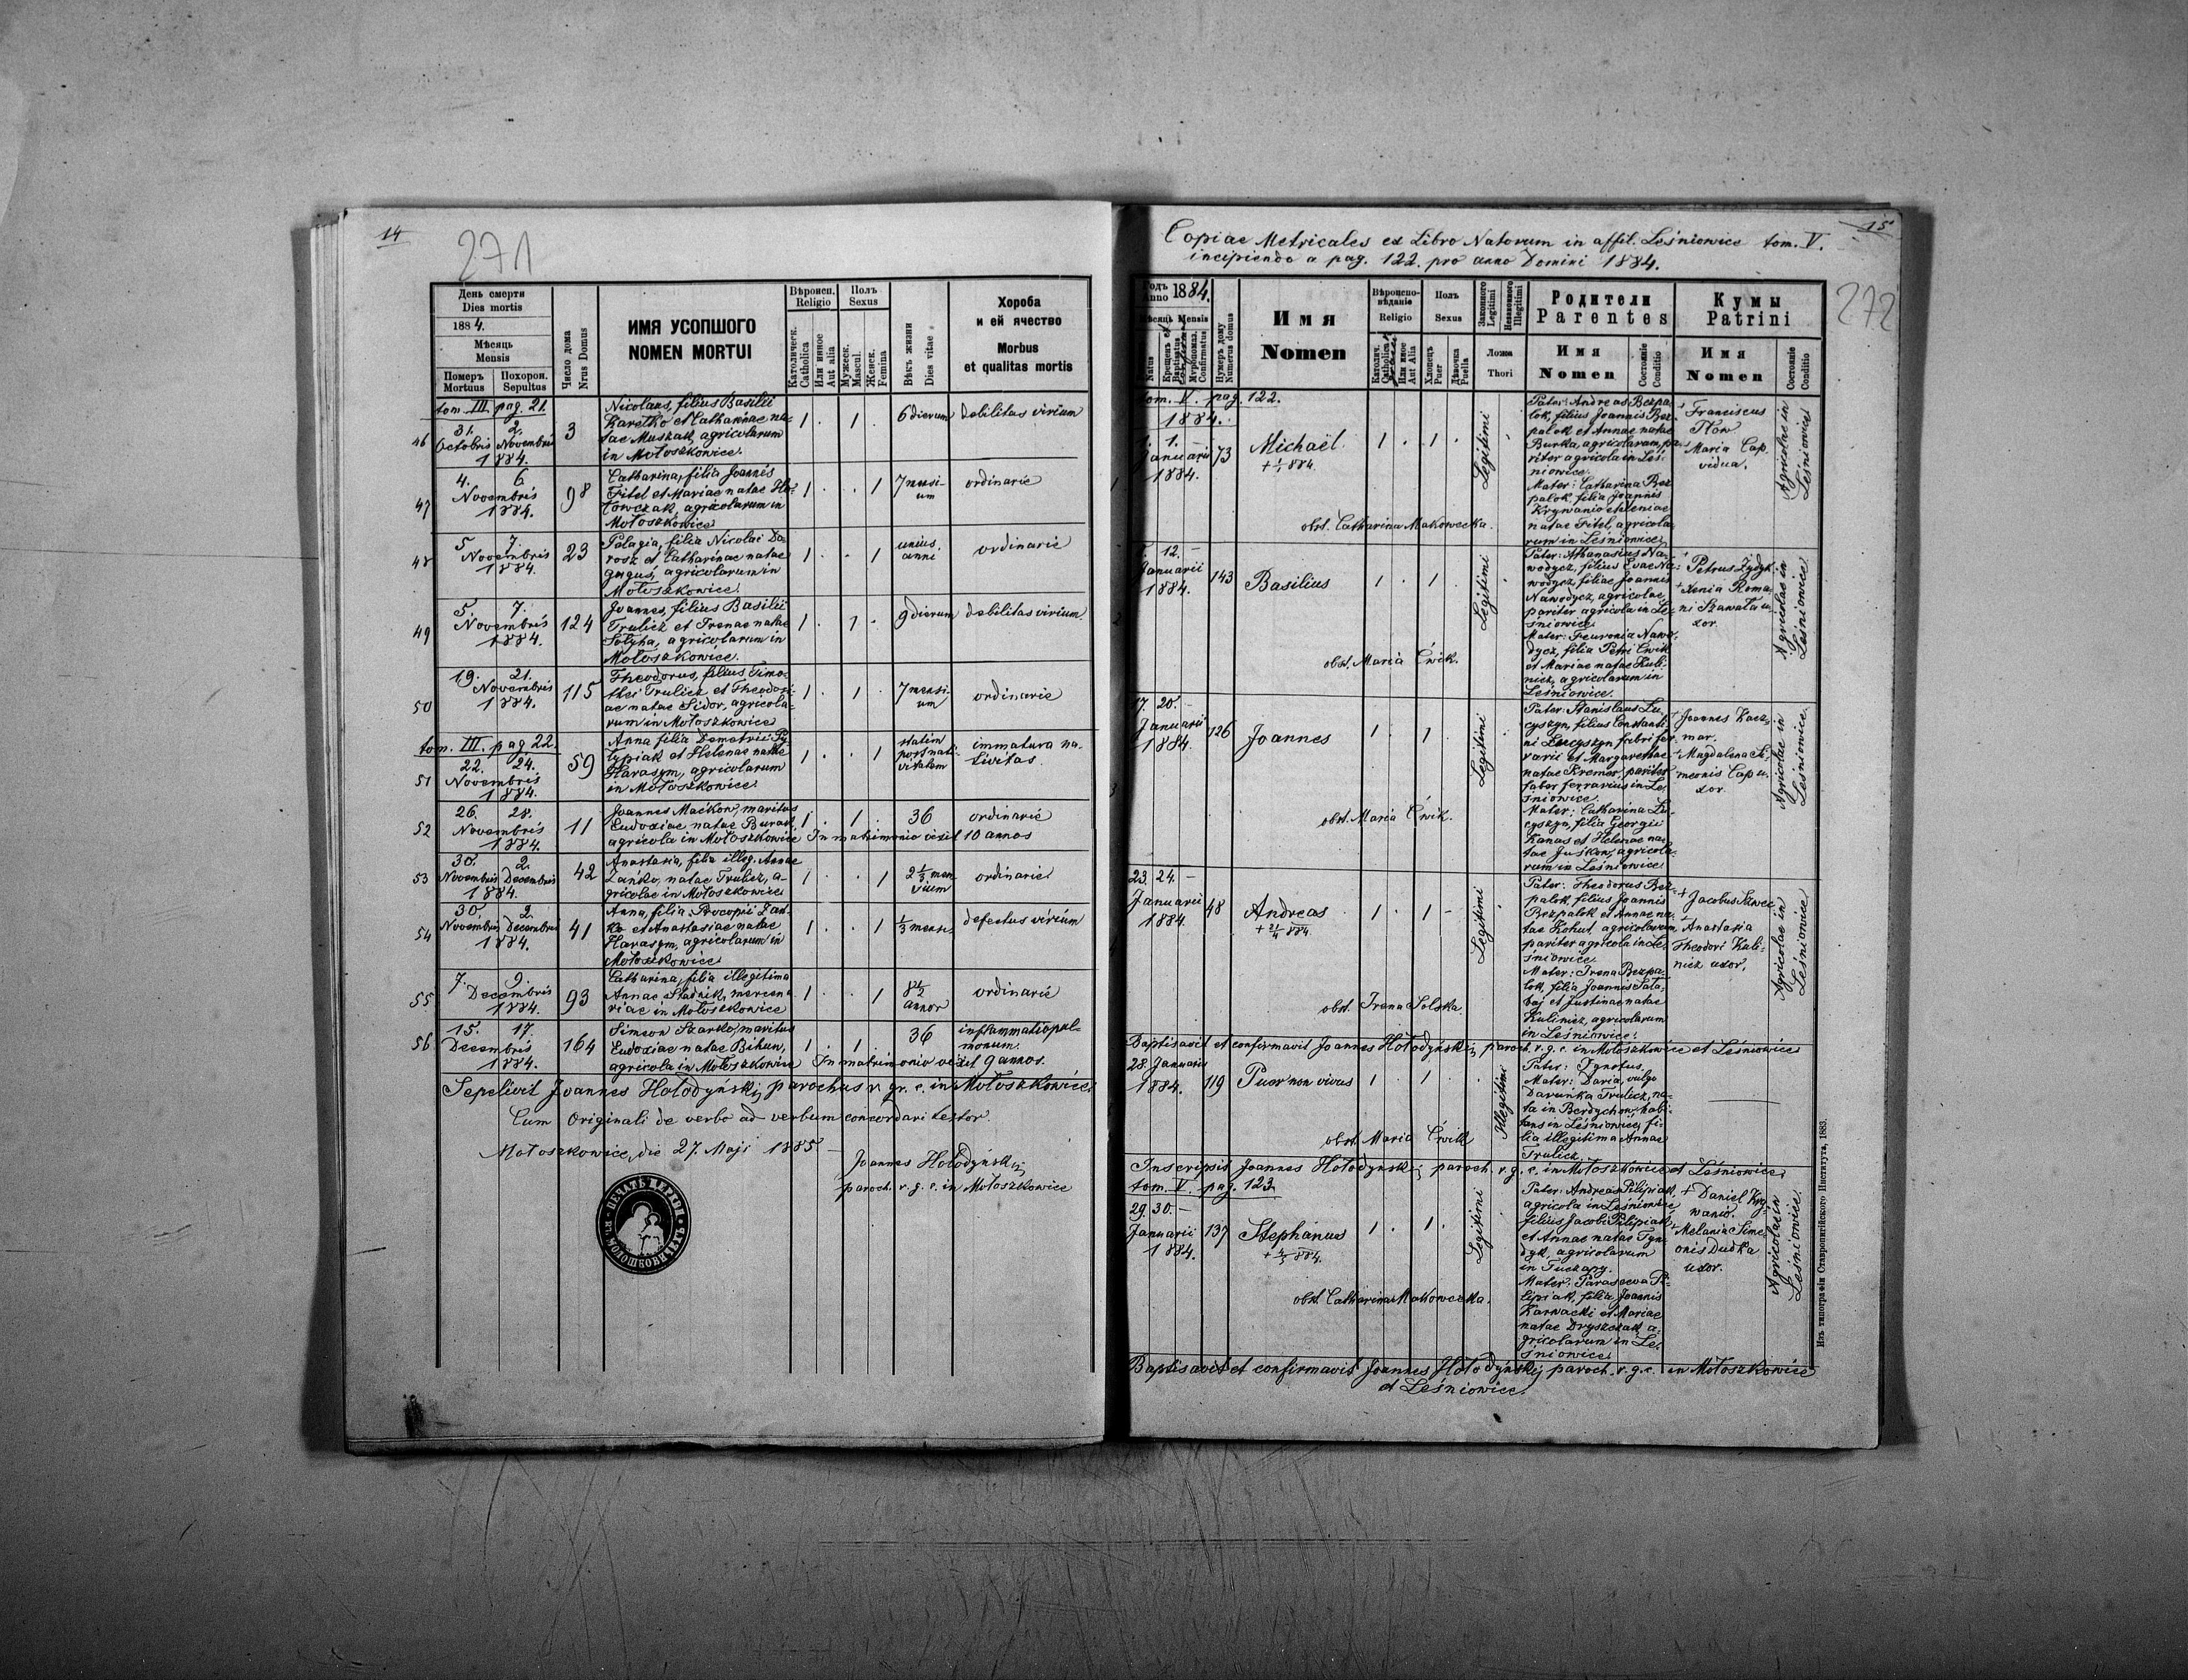 14
271
День смерти
Dies mortis
1884.
Мѣсяць
Mensis
Померъ
Mortuus
Похорон.
Sepultus
Число дома
Nrus Domus
ИМЯ УСОПШОГО
NOMEN MORTUI
Вѣроисп.
Religio
Католическ.
Catholica
Или инное
Aut alia
Полъ
Sexus
Мужеск.
Mascul.
Женск.
Femina
Вѣкъ жизни
Dies vitae
Хороба
и ей ячество
Morbus
et qualitas mortis
tom. III. pag. 21.
46
31. 2.
Octobris Novembris
1884.
3
Nicolaus, filius Basilii
Karetko et Catharinae na-
tae Muszak, agricolarum
in Mołoszkowice.
1 . 1 .
6 dierum
debilitas virium
47
4. 6.
Novembris
1884.
98
Catharina, filia Joannis
Fitel et Mariae natae
agricolarum in
Mołoszkowice
1 . . 1
7 mensi-
um
ordinarie
48
5. 7.
Novembris
1884.
23
Pelagia, filia Nicolai Do-
rosz et Catharinae natae
agricolarum in
Mołoszkowice
1 . . 1
unius
anni
ordinarie
49
5. 7.
Novembris
1884.
124
Joannes, filius Basilii
Trulicz et Irenae natae
Sołyha, agricolarum in
Mołoszkowice.
1 . 1 .
9 dierum
debilitas virium
50
19. 21.
Novembris
1884.
115
Theodorus, filius Timo-
thei Trulicz et Theodosi-
ae natae Sidor, agricola-
rum in Mołoszkowice
1 . 1 .
7 mensi-
um
ordinarie
tom. III. pag 22.
51
22. 24.
Novembris
1884.
59
Anna filia Demetrii Py-
lypiak et Helenae natae
Harasym, agricolarum
in Mołoszkowice
1 . . 1
statim
post nati-
vitatem
immatura na-
tivitas.
52
26. 28.
Novembris
1884.
11
Joannes Maćkow, maritus
Eudoxiae natae Burak
agricola in Mołoszkowice In matrimonio vixit 10 annos
1 . 1 .
36
ordinarie
53
30. 2.
Novembris Decembris
1884.
42
Anastasia, filia illeg. Annae
Zańko, natae Trulicz, a-
gricolae in Mołoszkowice
1 . . 1
2 1/3 men
sium
ordinarie
54
30. 2.
Novembris Decembris
1884.
41
Anna, filia Procopii Zań-
ko et Anastasiae natae
Harasym, agricolarum in
Mołoszkowice
1 . . 1
1/3 mensi.
defectus virium
55
7. 9.
Decembris
1884.
93
Catharina, filia illegitima
Annae Stadnik, mercena
riae in Mołoszkowice
1 . . 1
8 1/2
annor
ordinarie
56
15. 17.
Decembris
1884.
164
Simeon Szarko, maritus
Eudoxiae natae Bihun,
agricola in Mołoszkowice In matrimonio vixit 9 annos.
1 . 1 .
36
inflammatio pul-
monum.
Sepelivit Joannes Hołodyńskij parochus r. gr. c. in Mołoszkowice
Cum Originali de verbo ad verbum concordari testor.
Mołoszkowice, die 27. Maji 1885
Joannes Hołodyńskij
paroch. r. g. c. in Mołoszkowice
15
272
Copiae Metricales ex Libro Natorum in affil. Leśniowice tom. V.
incipiendo a pag. 122. pro anno Domini 1884.
Годъ
Anno 1884.
Мѣсяць Mensis
Natus
Крещенъ et
Baptisatus
Мѵропомаз.
Confirmatus
Нумеръ дому
Numerus domus
Имя
Nomen
Вѣроиспо-
вѣданіе
Religio
Католич.
Catholica
Или иное
Aut Alia
Полъ
Sexus
Хлопецъ
Puer
Дѣвочка
Puella
Законного
Legitimi
Незаконного
Illegitimi
Ложа
Thori
Родители
Parentes
Имя
Nomen
Состояніе
Conditio
Кумы
Patrini
Имя
Nomen
Состояніе
Conditio
tom. V. pag. 122.
1884.
1. 1. –
Januarii
1884.
73
Michaël
+ 1/1 884.
1 . 1 .
Legitimi
Pater: Andreas Bezpa-
lok, filius Joannis Bez-
palok et Annae natae
Burka, agricolarum, pa-
riter agricola in Leś-
niowice.
Mater: Catharina Bez
palok, filia Joannis
Krywanio et Xeniae
natae Fitel, agricola-
rum in Leśniowice
Franciscus
Tkow
Maria Cap
vidua.
Agricolae in
Leśniowice
obst. Catharina Makowecka.
12. –
Januarii
1884.
143
Basilius
1 . 1 .
Legitimi
Pater: Athanasius Na-
wodycz, filius Evae Na-
wodycz, filiae Joannis
Nawodycz, agricolae,
pariter agricola in Le-
śniowice
Mater: Feuronia Nawo-
dycz, filia Petri Ćwik
et Mariae natae Kuli-
nicz, agricolarum in
Leśniowice.
Petrus
Xenia Roma-
ni Szawała u-
xor.
Agricolae in
Leśniowice
obst. Maria Ćwik.
17. 20. –
Januarii
1884.
126
Joannes
1 . 1
Legitimi
Pater: Stanislaus Lu-
cyszyn, filius Constanti-
ni Lucyszyn fabri fer-
rarii et Margarethae
natae Kremer, pariter
faber ferrarius in Le-
śniowice.
Mater: Catharina Lu-
cyszyn, filia Georgii
Kanas et Helenae na-
tae Juśkow, agricola-
rum in Leśniowice
Joannes Kacz-
mar.
Magdalena Si-
meonis Cap u-
xor.
Agricolae in
Leśniowice.
obst. Maria Ćwik.
23. 24. –
Januarii
1884.
48
Andreas
+ 21/4 884.
1 . 1 –
Legitimi
Pater: Theodorus Bez-
palok, filius Joannis
Bezpalok et Annae na-
tae Kohut, agricolarum,
pariter agricola in Le-
śniowice.
Mater: Irena Bezpa-
lok, filia Joannis Sała-
baj et Justinae natae
Kulinicz, agricolarum
in Leśniowice.
+ Jacobus Sawec
Anastasia
Theodori Kuli-
nicz uxor.
Agricolae in
Leśniowice
obst. Irena Solska.
Baptisavit et confirmavit Joannes Hołodyńskij paroch. r. g. c. in Mołoszkowice et Leśniowice
28. Januarii
1884.
119
Puer non vivus
1 1
Illegitimi
Pater: Ignotus.
Mater: Daria, vulgo
Darunka Trulicz, na-
ta in Berdychow, habi-
tans in Leśniowice, fi-
lia illegitima Annae
Trulicz.
obst. Maria Ćwik
Inscripsit Joannes Hołodyńskij paroch. r. g. c. in Mołoszkowice et Leśniowice
tom. V. pag. 123
29. 30. –
Januarii
1884.
137
Stephanus
1 . 1 .
Legitimi
Pater: Andreas Pilipiak,
agricola in Leśniowice
filius Jacobi Pilipiak,
et Annae natae Tyn-
dyk, agricolarum
in Tuczapy.
Mater: Parascewa Pi-
lipiak, filia Joannis
Karwacki et Mariae
natae Dryszczak a-
gricolarum in Le-
śniowice
+ Daniel Kry-
wanio.
Melania Sime-
onis Dudka
uxor.
Agricolae in
Leśniowice.
obst. Catharina Makowecka.
Baptisavit et confirmavit Joannes Hołodyńskij paroch. r. g. c. in Mołoszkowice
et Leśniowice.
Изъ типографіи Ставропигійского Института, 1883.